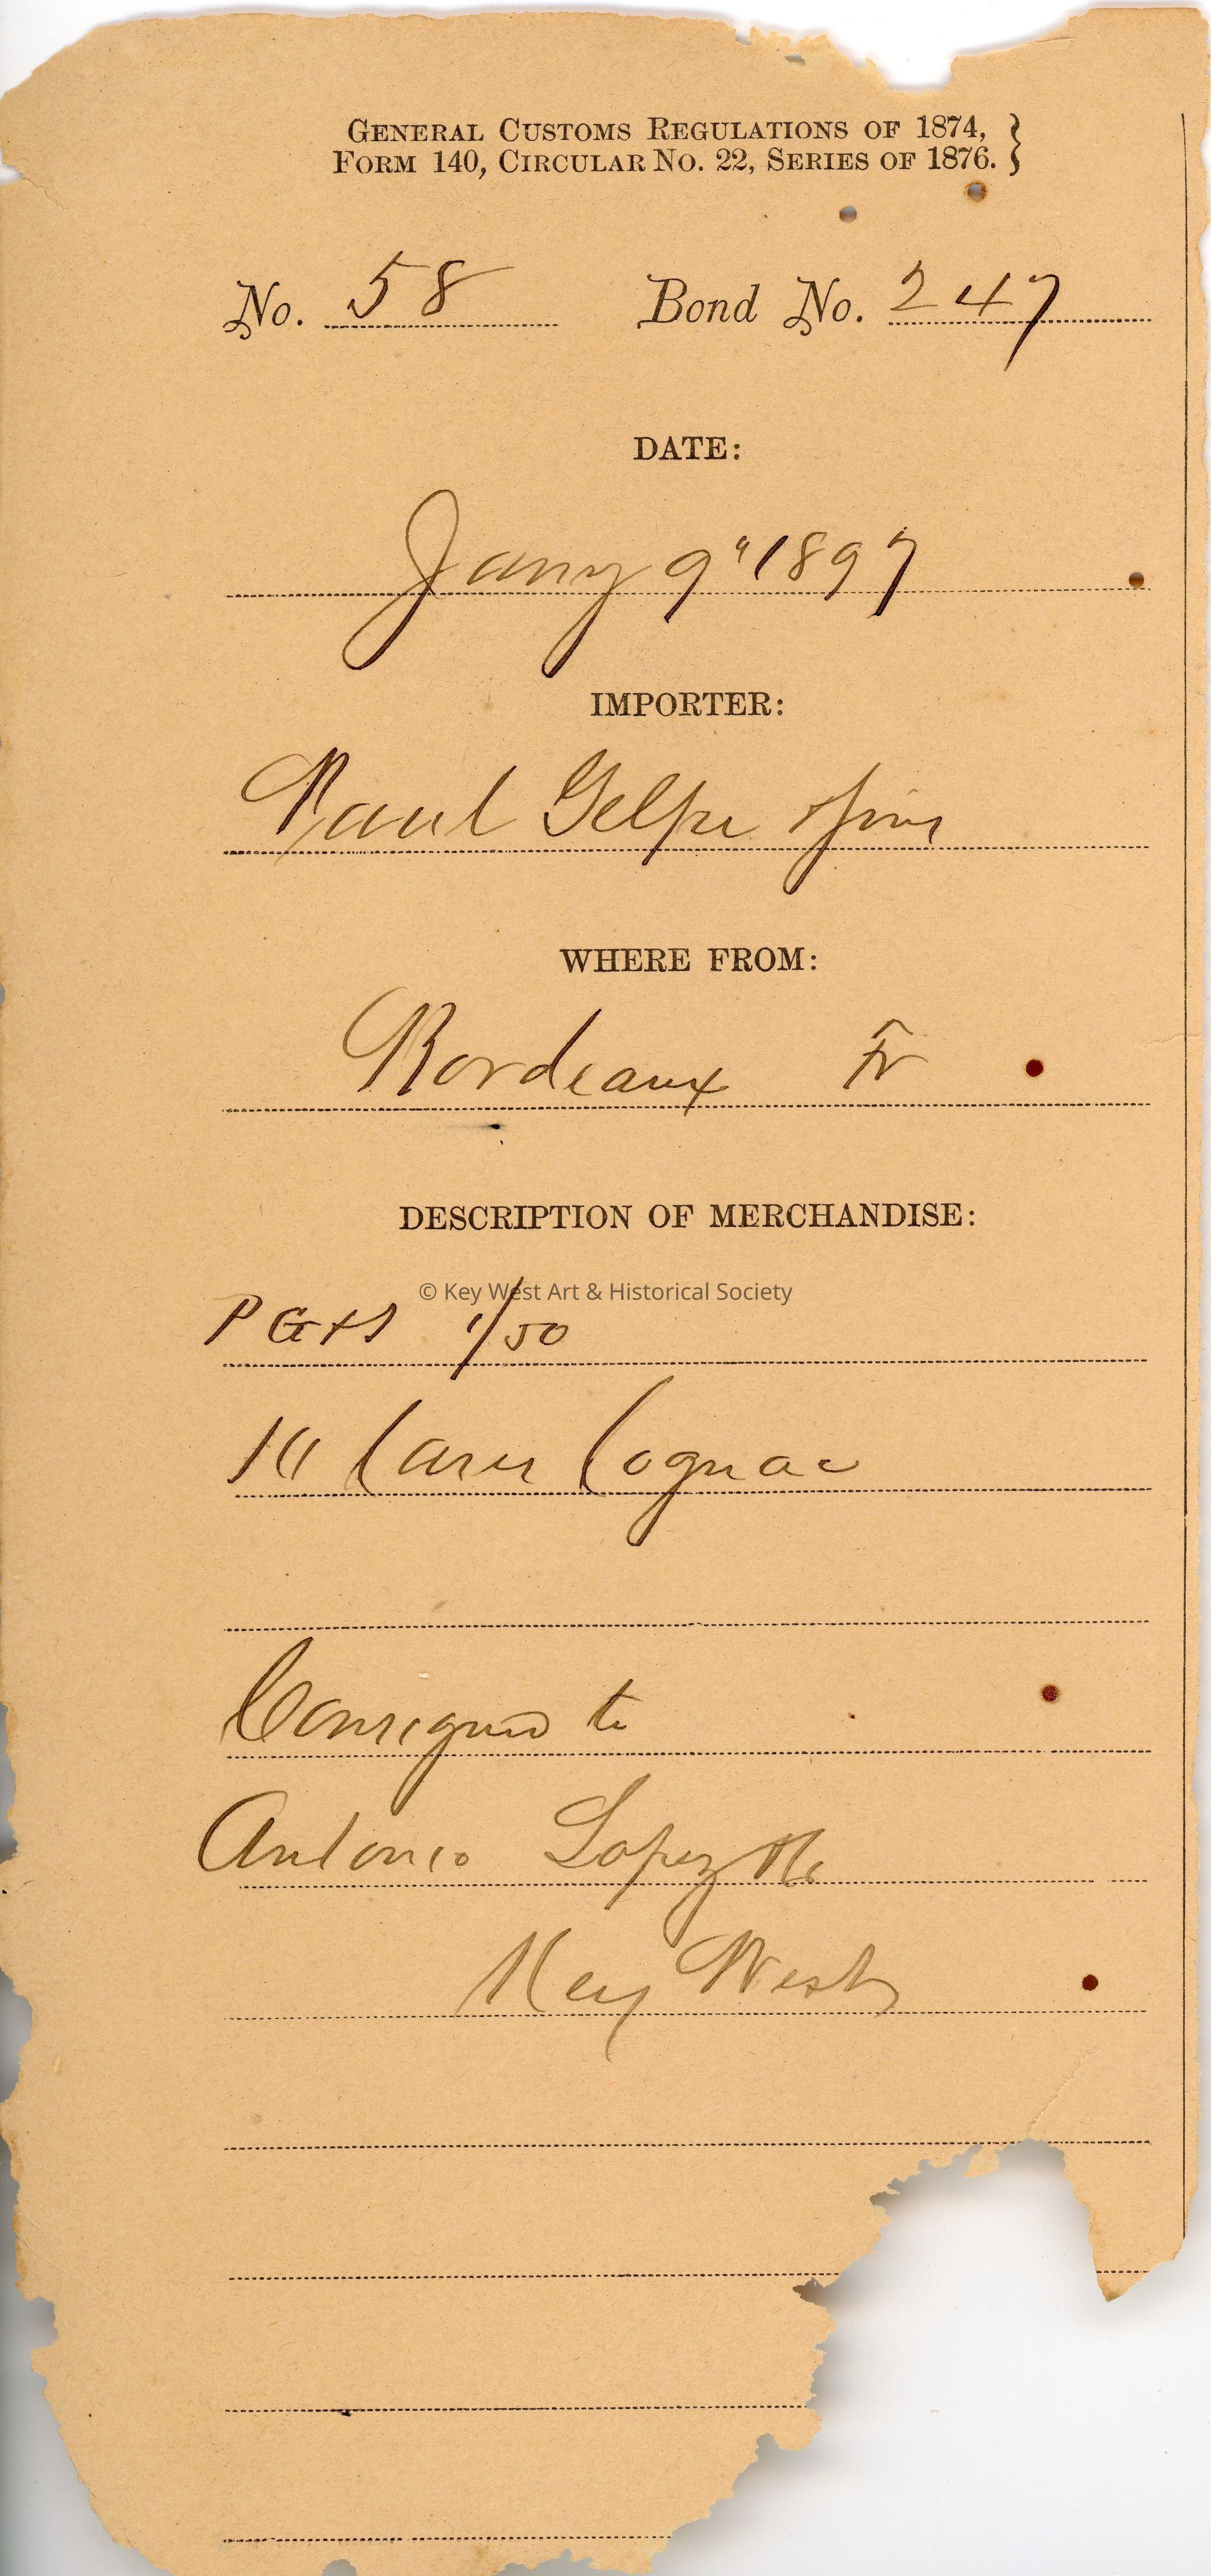 GENERAL CUSTOMS REGULATIONS OF 1874,
FORM 140, CIRCULAR NO. 22, SERIES OF 1876. }
No. 58 Bond No. 247
DATE:
Jany 9" 1897
IMPORTER:
Paul Gelpi
WHERE FROM:
Bordeaux Fr
DESCRIPTION OF MERCHANDISE:
© Key West Art & Historical Society
PG+S 1/50
Cases Cognac
Consigned to
Antonio Lopez
Key West